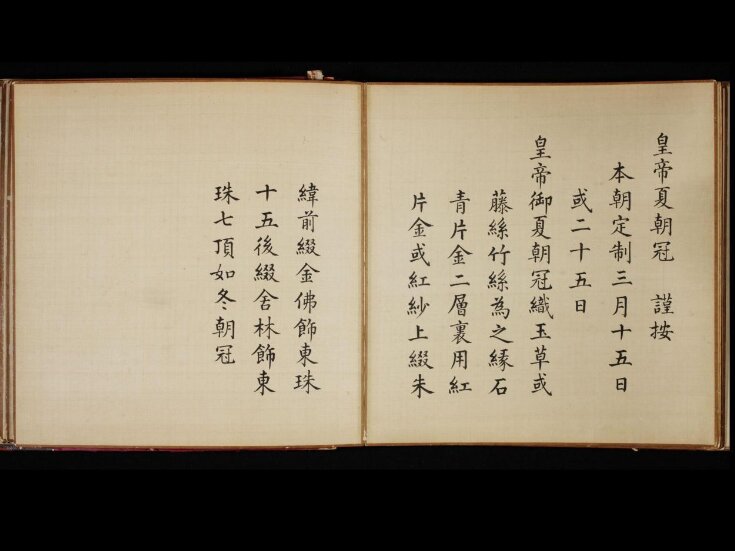 皇帝夏朝冠　謹按
本朝定制三月十五日
或二十五日
皇帝御夏朝冠織玉草或
藤絲竹絲為之緣石
青片金二層裏用紅
片金或紅紗上綴朱
緯前綴金佛飾東珠
十五後綴舍林飾東
珠七頂如冬朝冠